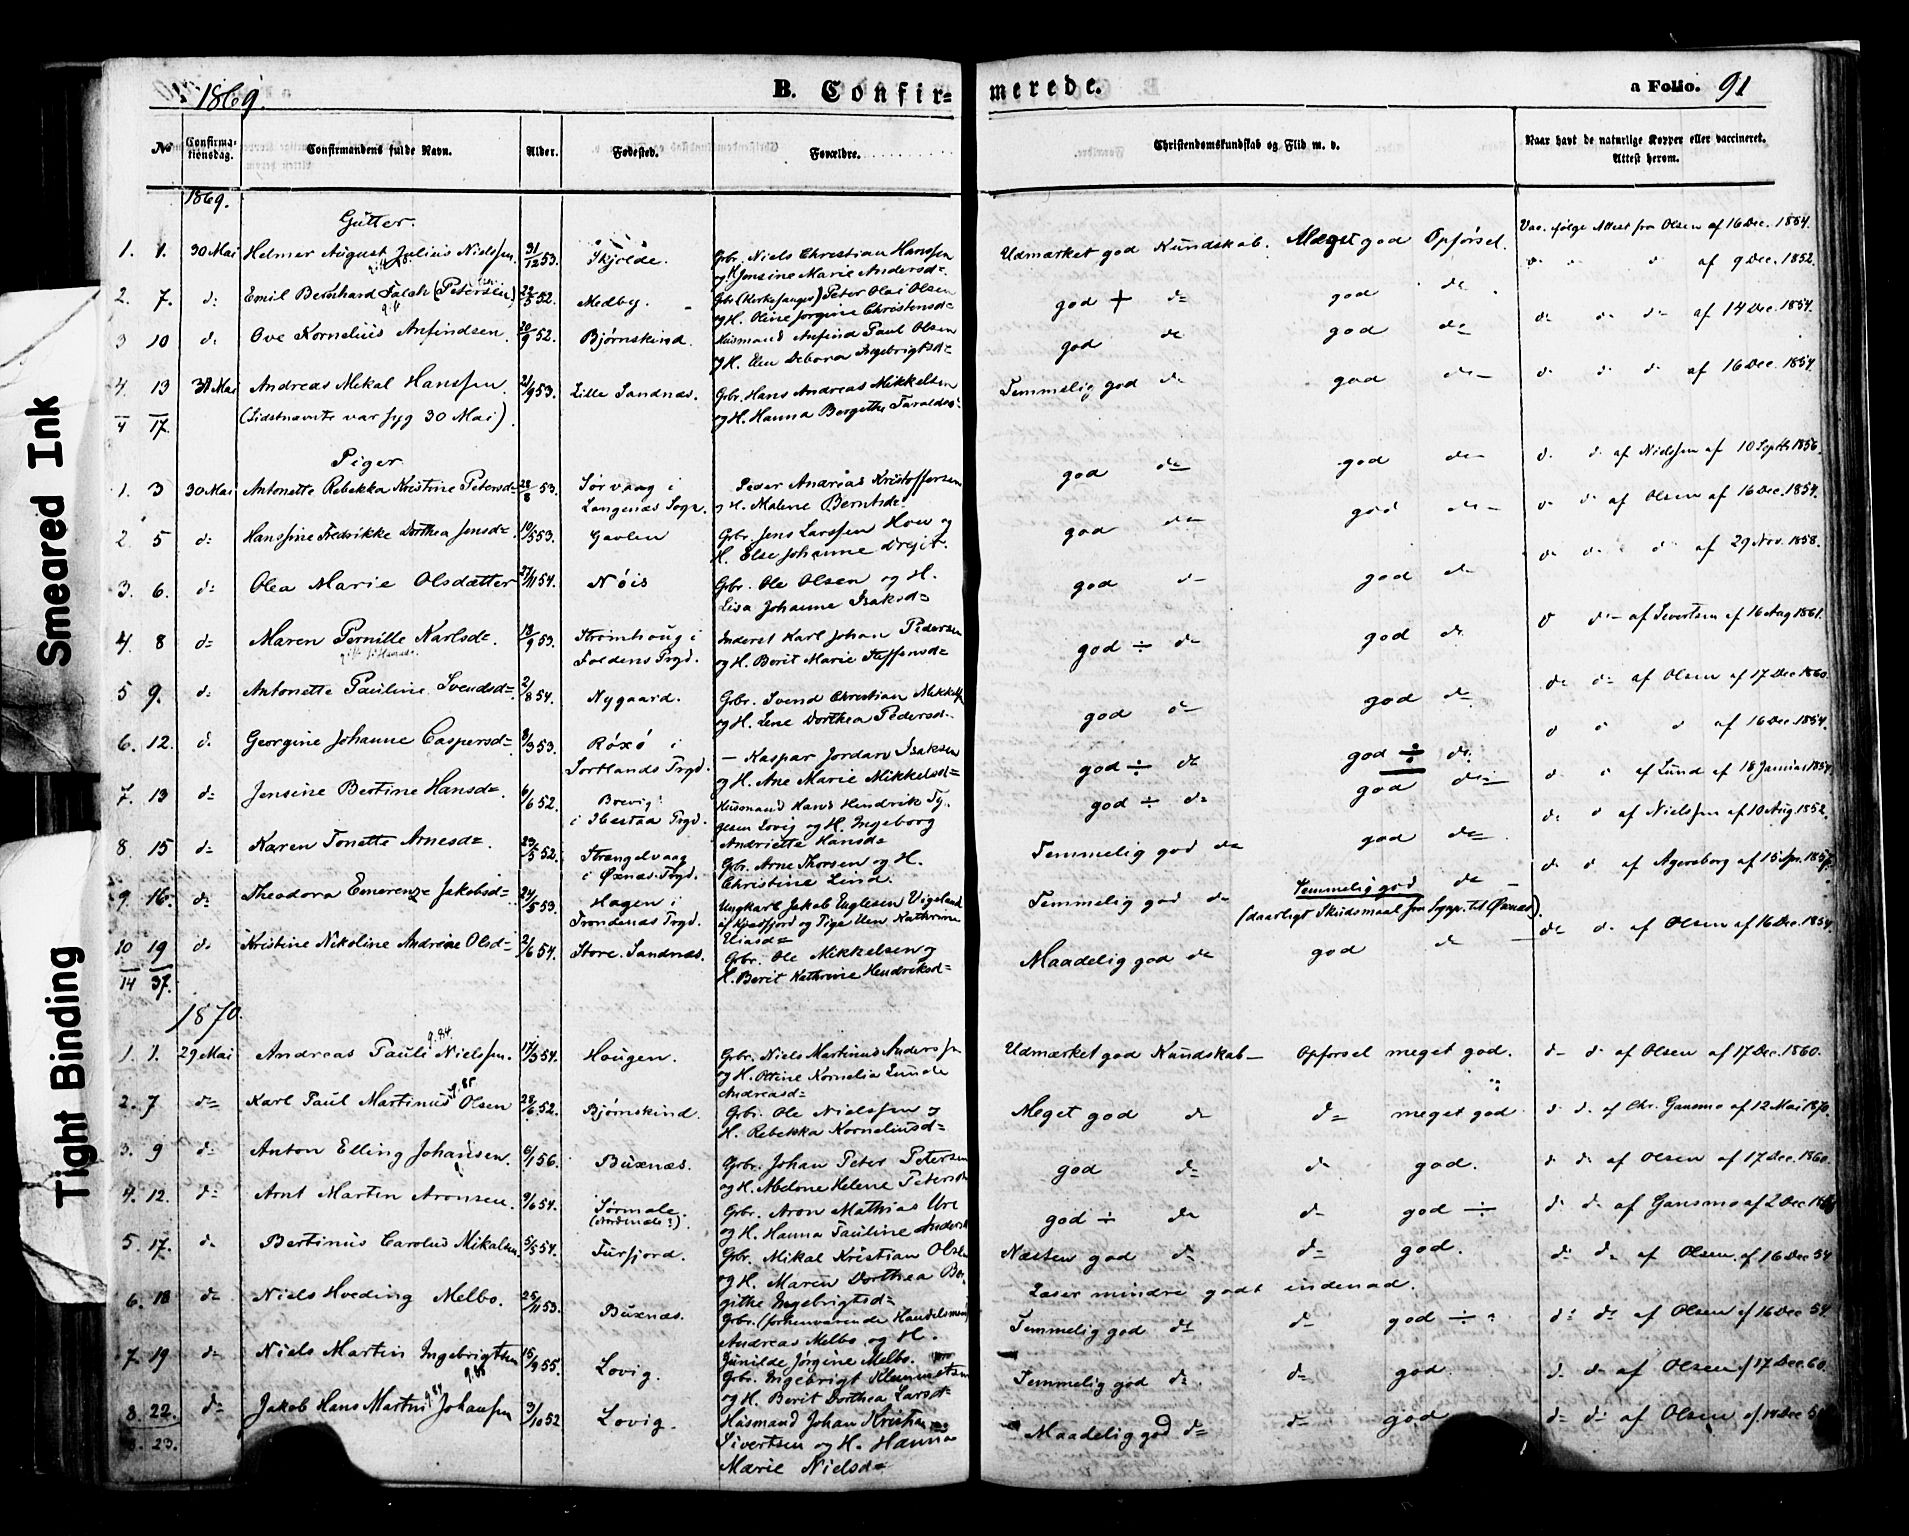 Smeared Ink
Tight Binding
1869.
B. Confirmerede.
a Folio. 91
No
Confirmationsdag.
Confirmandens fulde Navn.
Alder.
Fødested.
Forældre.
Christendomskundskab og Flid m. v.
Naar havt de naturlige Kopper eller vaccineret. Attest herom.
1869.
Gutter.
1. 1. 30 Mai Helmer August Julius Nielssen. 31/12 53. Skjolde. Gbr. Niels Christian Hanssen Udmærket god Kundskab. Meget god Opførsel. Vac. ifølge Attest fra Olsen af 16 Dec. 1854.
og H. Jensine Marie Andersd=
2. 7. d: Emil Bernhard Falch (Petersen) 22/5 52. Medby. Gbr (Kirkesanger) Peter Olai Olsen god + de god de af 9 Dec. 1852.
og H. Oline Jørgine Christensd=
3 10 d: Ove Kornelius Anfindsen. 20/9 52. Bjørnskind. Husmand Anfind Paul Olsen god de god de de de de af 14 Dec. 1854.
og H. Elen Debora Ingebrigtsd=
4. 13 31 Mai Andreas Mikal Hanssen 21/9 53. Lille Sandnæs. Gbr. Hans Andreas Mikkelsen Temmelig god de god de af 16 Dec. 1854.
4 17. (Sidstnævnte var syg 30 Mai). og H. Hanna Bergithe Taraldsd
Piger
1. 3 30 Mai Antonette Rebekka Kristine Petersd= 28/8 53. Sørvaag i Peder Andreas Kristoffersen god de god de d. d. af Nielssen af 10 Septb 1856.
Langenæs Sogn. H. Malene Berntsd.
2. 5 d: Hanssine Fredrikke Dorthea Jensd= 10/5 53. Gavlen Gbr. Jens Larssen Hov og god de god de af Olsen af 16 Dec. 1854.
H. Else Johanne Drejer.
3. 6. d: Olea Marie Olsdatter 27/11 54. Nøis Gbr. Ole Olsen og H. god de god de af 29 Nov. 1858.
Lisa Johanne Isaksd=
4. 8 d= Maren Pernille Karlsd. 13/9 53. Strømhoug i Inderst Karl Johan Pedersen god ÷ de god de af Sivertsen af 16 Aug 1861.
Foldens Prgd. og H. Berit Marie Steffensd=
5 9. d: Antonette Pauline Svendsd= 2/8 54. Nygaard. Gbr. Svend Christian Mikkels god de god de de de af Olsen af 17 Dec 1860.
og H. Lene Dorthea Pedersd.
6. 12. d. Georgine Johanne Caspersd= 8/3 53. Røxø i — Kaspar Jordan Isaksen god ÷ de god ÷ de af 16 Dec. 1854.
Sortlands Prgd. og H. Ane Marie Mikkelsd=
7. 13 d= Jensine Bertine Hansd=. 6/6 52. Brevig Husmand Hans Hendrik Ty- god ÷ de god de af Lund af 18 Januar 1854.
i Ibestad Prgd. gesen Lovig og H. Ingeborg
Andriette Hansd=
8. 15 d= Karen Tonette Arnesd=. 23/5 52. Strengelvaag Gbr. Arne Thorsen og H. Temmelig god de god de de d af Nielssen af 10 Aug. 1852.
i Øxnæs Prgd. Christine Lind.
9. 16. d: Theodora Emerenze Jakobsd= 24/5 53. Hagen i Ungkarl Jakob Englesen Vigeland Temmelig god de Temmelig god de d. d. af Agersborg af 15 Apr. 1857.
Trondenæs Prgd. af Kvæfjord og Pige Elen Kathrine (daarligt Skudsmaal fra Sogn. til Øxnæs).
Eliasd=
10 19 d. Kristine Nikoline Andrine Olsd= 2/6 54. Store Sandnæs. Gbr. Ole Mikkelsen og Maadelig god de god de de d. af Olsen af 16 Dec. 1854.
14 37. H. Berit Kathrine Hendriksd=
1870.
1. 1. 29 Mai Andreas Pauli Nielssen. 17/3 54. Hougen. Gbr. Niels Martinus Anderssen Udmærket god Kundskab — Opførsel meget god. d= d. af Olsen af 17 Dec. 1860.
og H. Oline Kornelia Lunde
Andreasd=
2. 7 d= Karl Paul Martinus Olsen 28/6 52. Bjørnskind. Gbr. Ole Nielssen og Meget god de d= meget god d. d. af Chr. Gansmo af 12 Mai 1870.
H. Rebekka Korneliusd=
3. 9 d= Anton Elling Johansen. 6/1 56. Buxnæs. Gbr. Johan Peter Petersen god de de god. d. d. af Olsen af 17 Dec. 1860.
og H. Melone Helene Petersd=
4. 12. d= Arnt Martin Aronsen. 9/6 54. Sørmale. Gbr. Aron Mathias Ure god ÷ de de god ÷ d. d. af Gansmo af 2 Dec
og H. Hanna Pauline Andersd
5. 17. d= Bertinus Carolus Mikalsen 5/5 54. Furfjord. Gbr. Mikal Kristian Olsen Næsten god de d= god. d: de af Olsen. af 16 Dec 54
og H. Maren Dorthea Ber- Læser mindre godt indenad.
githe Ingebrigtsd=
6. 18 d= Niels Hveding Melbo. 25/11 53. Buxnæs. Gbr. (forhenværende Handelsmand) Temmelig god de de god ÷ d: de af Olsen af 16 Dec 54
Andreas Melbo og H.
Gunilde Jørgine Melbo.
7. 19 d= Niels Martin Ingebrigtsen 15/9 55. Lovig. Gbr. Ingebrigt Klemmetsen Temmelig god de. d= god. d= de af Olsen af 17 Dec. 60.
og H. Berit Dorthea Larsd=
8. 22. d= Jakob Hans Martin Johanssen 9/10 52 Lovig. Husmand Johan Kristian Maadelig god d= d= god d= d= af Olsen af Dec
8. 23. Sivertsen og H. Hanna
Marie Nielsd=